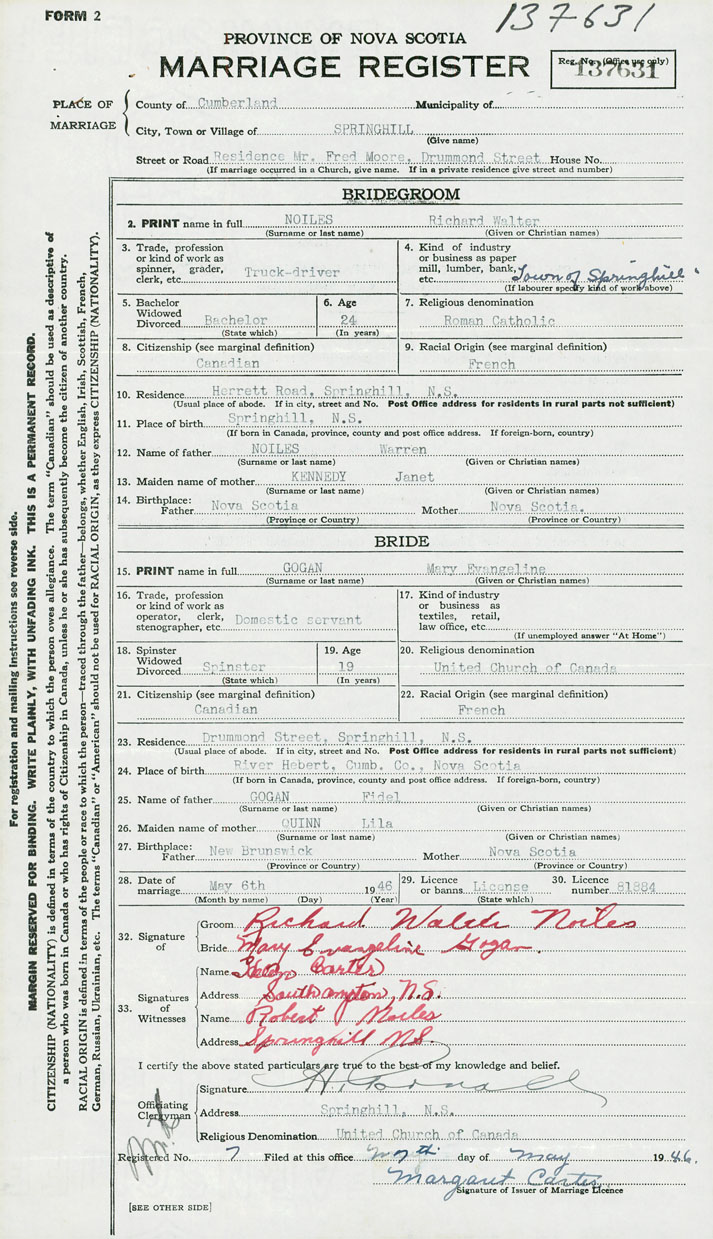 FORM 2
137631
PROVINCE OF NOVA SCOTIA
MARRIAGE REGISTER
Reg. No. (Office use only)
137631
PLACE OF MARRIAGE
County of Cumberland Municipality of
City, Town or Village of SPRINGHILL
(Give name)
Street or Road Residence Mr. Fred Moore, Drummond Street House No.
(If marriage occurred in a Church, give name. If in a private residence give street and number)
BRIDEGROOM
2. PRINT name in full NOILES Richard Walter
(Surname or last name) (Given or Christian names)
3. Trade, profession or kind of work as spinner, grader, clerk, etc. Truck-driver
4. Kind of industry or business as paper mill, lumber, bank, etc. Town of Springhill
(If labourer specify kind of work above)
5. Bachelor Widowed Divorced Bachelor
(State which)
6. Age 24
(In years)
7. Religious denomination
Roman Catholic
8. Citizenship (see marginal definition)
Canadian
9. Racial Origin (see marginal definition)
French
10. Residence Herrett Road, Springhill, N.S.
(Usual place of abode. If in city, street and No. Post Office address for residents in rural parts not sufficient)
11. Place of birth Springhill, N.S.
(If born in Canada, province, county and post office address. If foreign-born, country)
12. Name of father NOILES Warren
(Surname or last name) (Given or Christian names)
13. Maiden name of mother KENNEDY Janet
(Surname or last name) (Given or Christian names)
14. Birthplace: Father Nova Scotia Mother Nova Scotia.
(Province or Country) (Province or Country)
BRIDE
15. PRINT name in full GOGAN Mary Evangeline
(Surname or last name) (Given or Christian names)
16. Trade, profession or kind of work as operator, clerk, stenographer, etc. Domestic servant
17. Kind of industry or business as textiles, retail, law office, etc.
(If unemployed answer "At Home")
18. Spinster Widowed Divorced Spinster
(State which)
19. Age 19
(In years)
20. Religious denomination
United Church of Canada
21. Citizenship (see marginal definition)
Canadian
22. Racial Origin (see marginal definition)
French
23. Residence Drummond Street, Springhill, N.S.
(Usual place of abode. If in city, street and No. Post Office address for residents in rural parts not sufficient)
24. Place of birth River Hebert, Cumb. Co., Nova Scotia
(If born in Canada, province, county and post office address. If foreign-born, country)
25. Name of father GOGAN Fidel
(Surname or last name) (Given or Christian names)
26. Maiden name of mother QUINN Lila
(Surname or last name) (Given or Christian names)
27. Birthplace: Father New Brunswick Mother Nova Scotia
(Province or Country) (Province or Country)
28. Date of marriage May 6th 1946
(Month by name) (Day) (Year)
29. Licence or banns License
(State which)
30. Licence number 81884
32. Signature of
Groom Richard Walter Noiles
Bride Mary Evangeline Gogan.
33. Signatures of Witnesses
Name Carter
Address Southampton, N.S.
Name Robert Noiles
Address Springhill N.S.
I certify the above stated particulars are true to the best of my knowledge and belief.
Officiating Clergyman
Signature
Address Springhill, N.S.
Religious Denomination United Church of Canada
Registered No. 7 Filed at this office 7th day of May 1946.
Margaret Carter
Signature of Issuer of Marriage Licence
[SEE OTHER SIDE]
For registration and mailing instructions see reverse side.
MARGIN RESERVED FOR BINDING. WRITE PLAINLY, WITH UNFADING INK. THIS IS A PERMANENT RECORD.
CITIZENSHIP (NATIONALITY) is defined in terms of the country to which the person owes allegiance. The term "Canadian" should be used as descriptive of
a person who was born in Canada or who has rights of Citizenship in Canada, unless he or she has subsequently become the citizen of another country.
RACIAL ORIGIN is defined in terms of the people or race to which the person—traced through the father—belongs, whether English, Irish, Scottish, French,
German, Russian, Ukrainian, etc. The terms "Canadian" or "American" should not be used for RACIAL ORIGIN, as they express CITIZENSHIP (NATIONALITY).